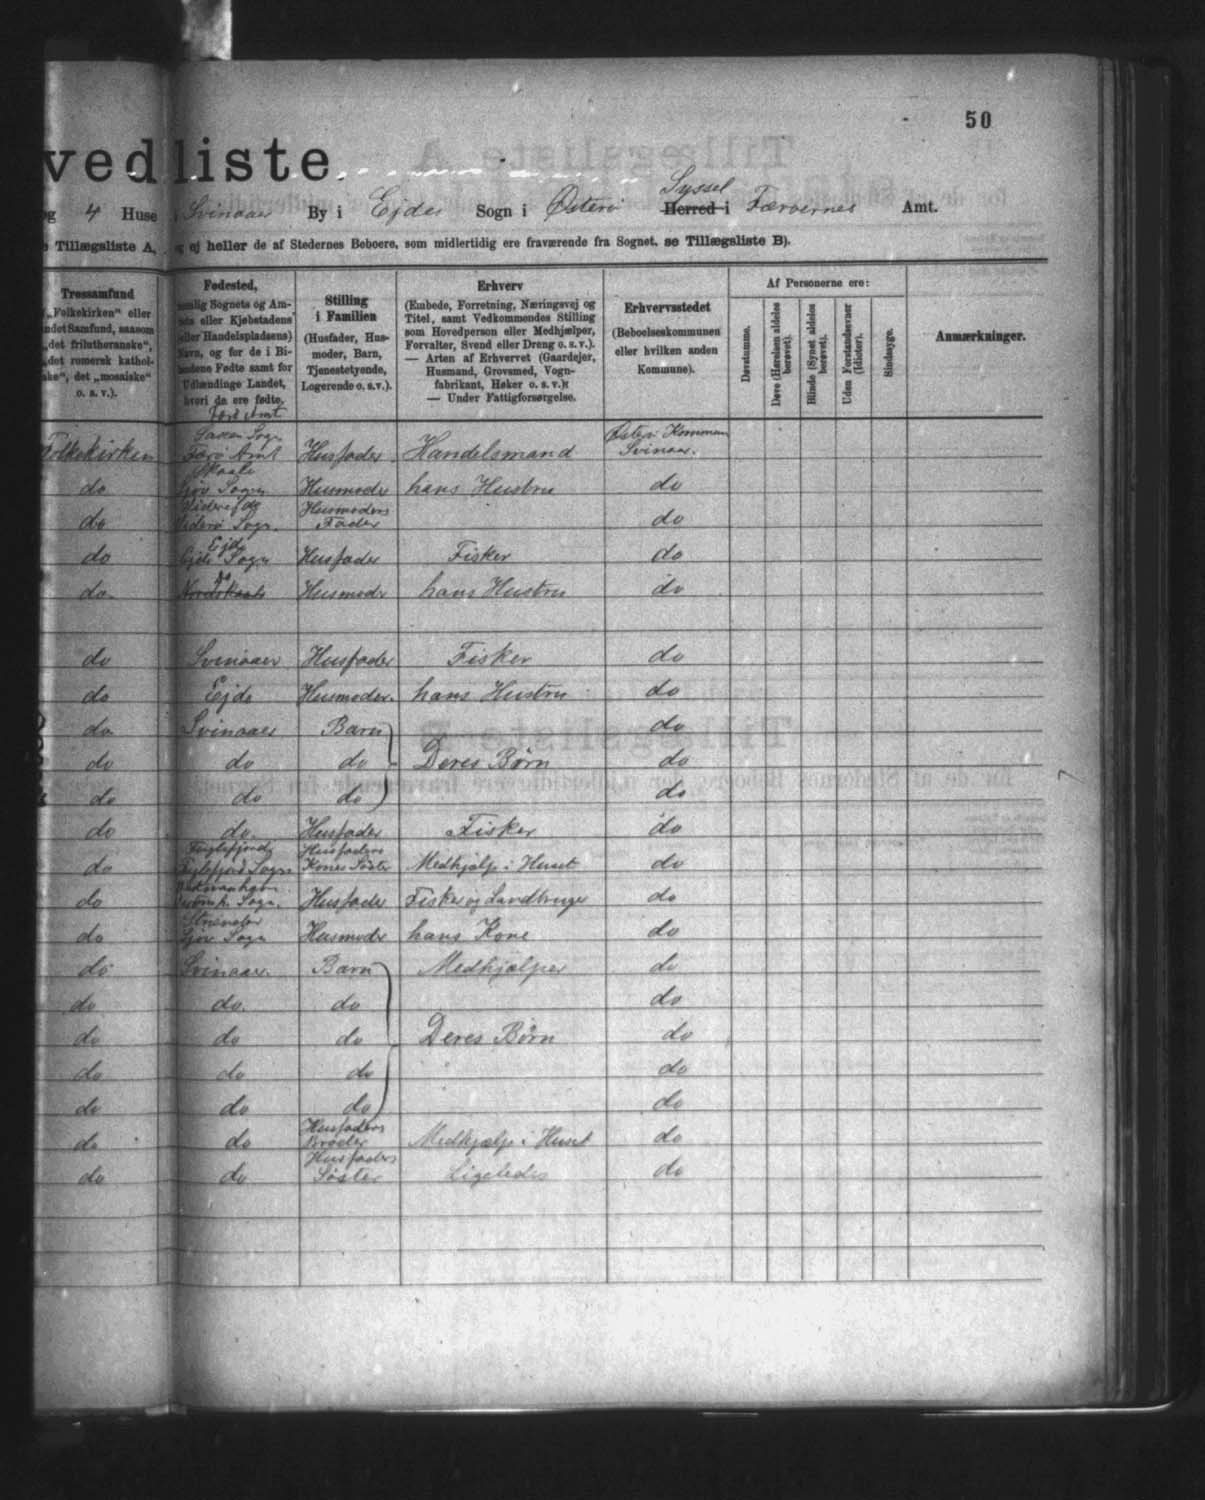 50
vedliste.
og 4 Huse i Svinaaer By i Ejde Sogn i Østerø Syssel Herred i Færøernes Amt.
Tillægsliste A, og ej heller de af Stedernes Beboere, som midlertidig ere fraværende fra Sognet, se Tillægsliste B).
Trossamfund
„Folkekirken" eller
andet Samfund, saasom
„det frilutheranske",
„det romersk kathol-
ske", det „mosaiske"
o. s. v.).
Fødested,
nemlig Sognets og Am-
tets eller Kjøbstadens
(eller Handelspladsens)
Navn, og for de i Bi-
landene Fødte samt for
Udlændinge Landet,
hvori de ere fødte.
Stilling
i Familien
(Husfader, Hus-
moder, Barn,
Tjenestetyende,
Logerende o. s. v.).
Erhverv
(Embede, Forretning, Næringsvej og
Titel, samt Vedkommendes Stilling
som Hovedperson eller Medhjælper,
Forvalter, Svend eller Dreng o. s. v.).
— Arten af Erhvervet (Gaardejer,
Husmand, Grovsmed, Vogn-
fabrikant, Høker o. s. v.):
— Under Fattigforsørgelse.
Erhvervsstedet
(Beboelseskommunen
eller hvilken anden
Kommune).
Af Personerne ere:
Døvstumme.
Døve (Hørelsen aldeles
berøvet).
Blinde (Synet aldeles
berøvet).
Uden Forstandsevner
(Idioter).
Sindssyge.
Anmærkninger.
Amt
Sogn Østerø Kommune
Folkekirken Færø Amt Husfader Handelsmand Svinaaer.
Skaale
do Sjov Sogn Husmoder hans Hustru do
Husmoders
do Viderø Sogn. Fader do
Ejde
do Ejde Sogn Husfader Fisker do
do
do Nordskaale Husmoder hans Hustru do
do Svinaaer Husfader Fisker do
do Ejde Husmoder. hans Hustru do
do Svinaaer Barn do
do do do Deres Børn do
do do do do
do do. Husfader Fisker do
Fuglefjord Husfaders
do Fuglefjord Sogn Kones Søster Medhjælp i Huset do
do Sogn. Husfader Fisker og Landbruger do
do Sjov Sogn Husmoder hans Kone do
do Svinaaer. Barn Medhjælper do
do do. do do
do do do Deres Børn do
do do do do
do do do do
Husfaders
do do Broder Medhjælp i Huset do
Husfaders
do do Søster Ligeledes do